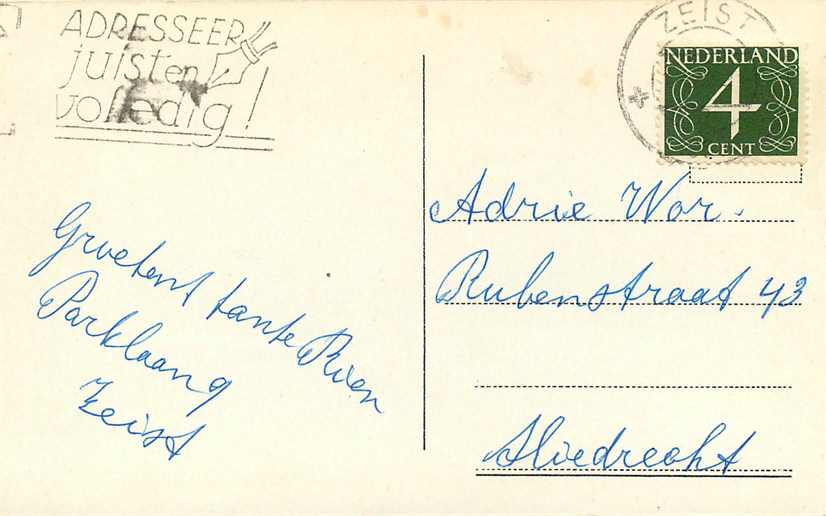 ADRESSEER
juist en
volledig!
ZEIST
NEDERLAND
4
CENT
Groeten tante Rien
Parklaan 9
Zeist
Adrie Wor.
Rubenstraat 43
Sliedrecht